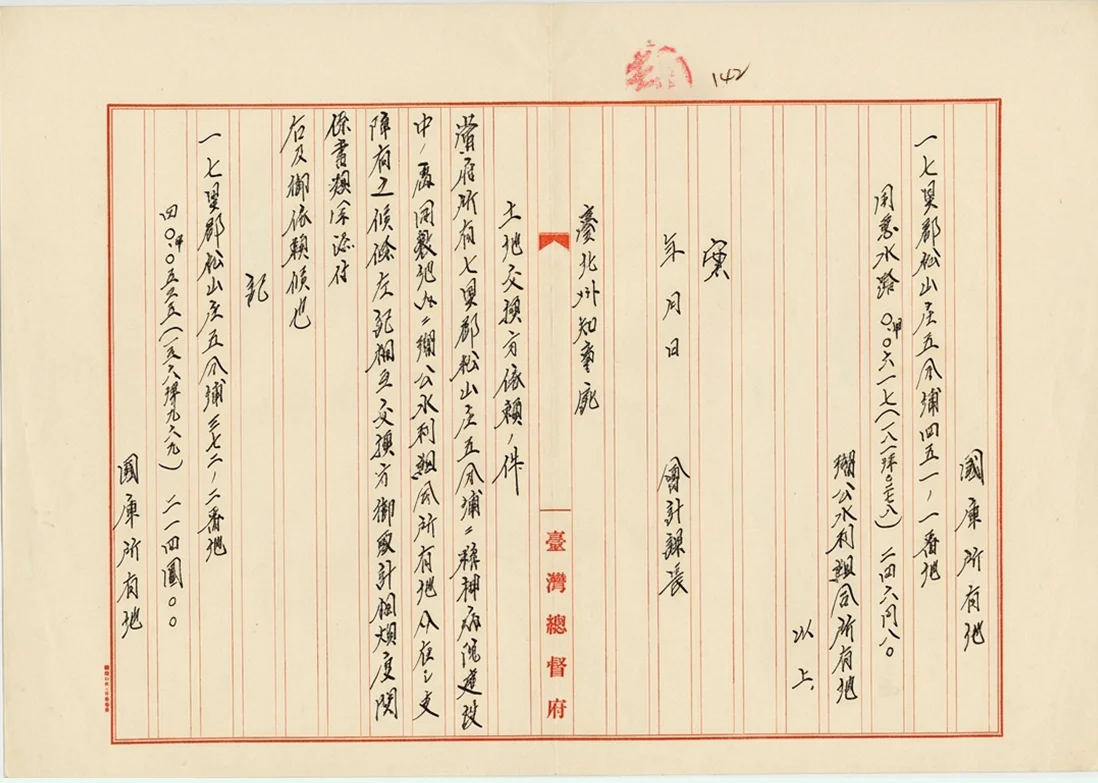 142
國庫所有地
一七星郡松山庄五分埔四五一ノ一番地
用惡水路 〇甲.〇六一七(一八一坪〇二七八) 二四六円八〇
瑠公水利組合所有地
以上
案
年月日 會計課長
臺北州知事宛
臺灣總督府
土地交換方依賴ノ件
當府所有七星郡松山庄五分埔ニ精神病院建設
中ノ處同敷地內ニ瑠公水利組合所有地介在シ支
障有之候條左記相互交換方御取計相煩度関
係書類添付
右及御依賴候也
記
一七星郡松山庄五分埔三七二ノ二番地
〇甲.〇五三五(一五六坪九六九) 二一四圓〇〇
國庫所有地